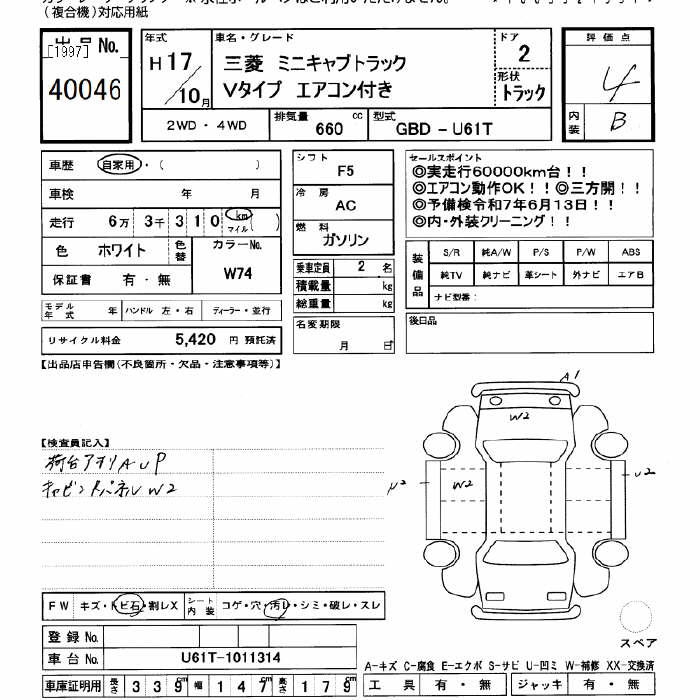 (複合機)対応用紙
出品No.
[1997]
40046
年式
H 17
10月
車名・グレード
三菱 ミニキャブトラック
Vタイプ エアコン付き
ドア
2
形状
トラック
評価点
4
内装
B
2WD・4WD
排気量 660 cc
型式 GBD - U61T
車歴 自家用・( )
車検 年 月
走行 6万 3千 3 1 0 km マイル ( )
色 ホワイト
色替
カラーNo.
W74
保証書 有・無
モデル年式 年
ハンドル 左・右
ディーラー・並行
リサイクル料金 5,420 円 預託済
シフト
F5
冷房
AC
燃料
ガソリン
乗車定員 2 名
積載量 kg
総重量 kg
名変期限
月 日
セールスポイント
◎実走行60000km台!!
◎エアコン動作OK!!◎三方開!!
◎予備検令和7年6月13日!!
◎内・外装クリーニング!!
装備品
S/R 純A/W P/S P/W ABS
純TV 純ナビ 革シート 外ナビ エアB
ナビ型番:
後日品
【出品店申告欄(不良箇所・欠品・注意事項等)】
【検査員記入】
荷台アオリAUP
キャビントパネルW2
A1
W2
W2
U2
U2
FW キズ・トビ石・割レX
シート内装 コゲ・穴・汚レ・シミ・破レ・スレ
登録No.
車台No. U61T-1011314
車庫証明用 長さ 339cm 幅 147cm 高さ 179cm
スペア
A-キズ C-腐食 E-エクボ S-サビ U-凹ミ W-補修 XX-交換済
工具 有・無 ジャッキ 有・無